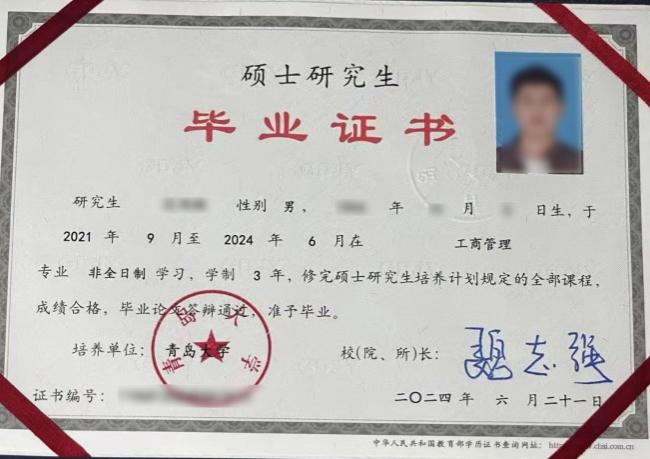 硕士研究生
毕业证书
研究生 性别 男， 年 月 日生，于
2021 年 9 月至 2024 年 6 月在 工商管理
专业 非全日制 学习，学制 3 年，修完硕士研究生培养计划规定的全部课程，
成绩合格，毕业论文答辩通过，准予毕业。
培养单位：青岛大学 校(院、所)长：魏志强
青岛大学
证书编号： 二〇二四 年 六 月 二十一日
中华人民共和国教育部学历证书查询网址：